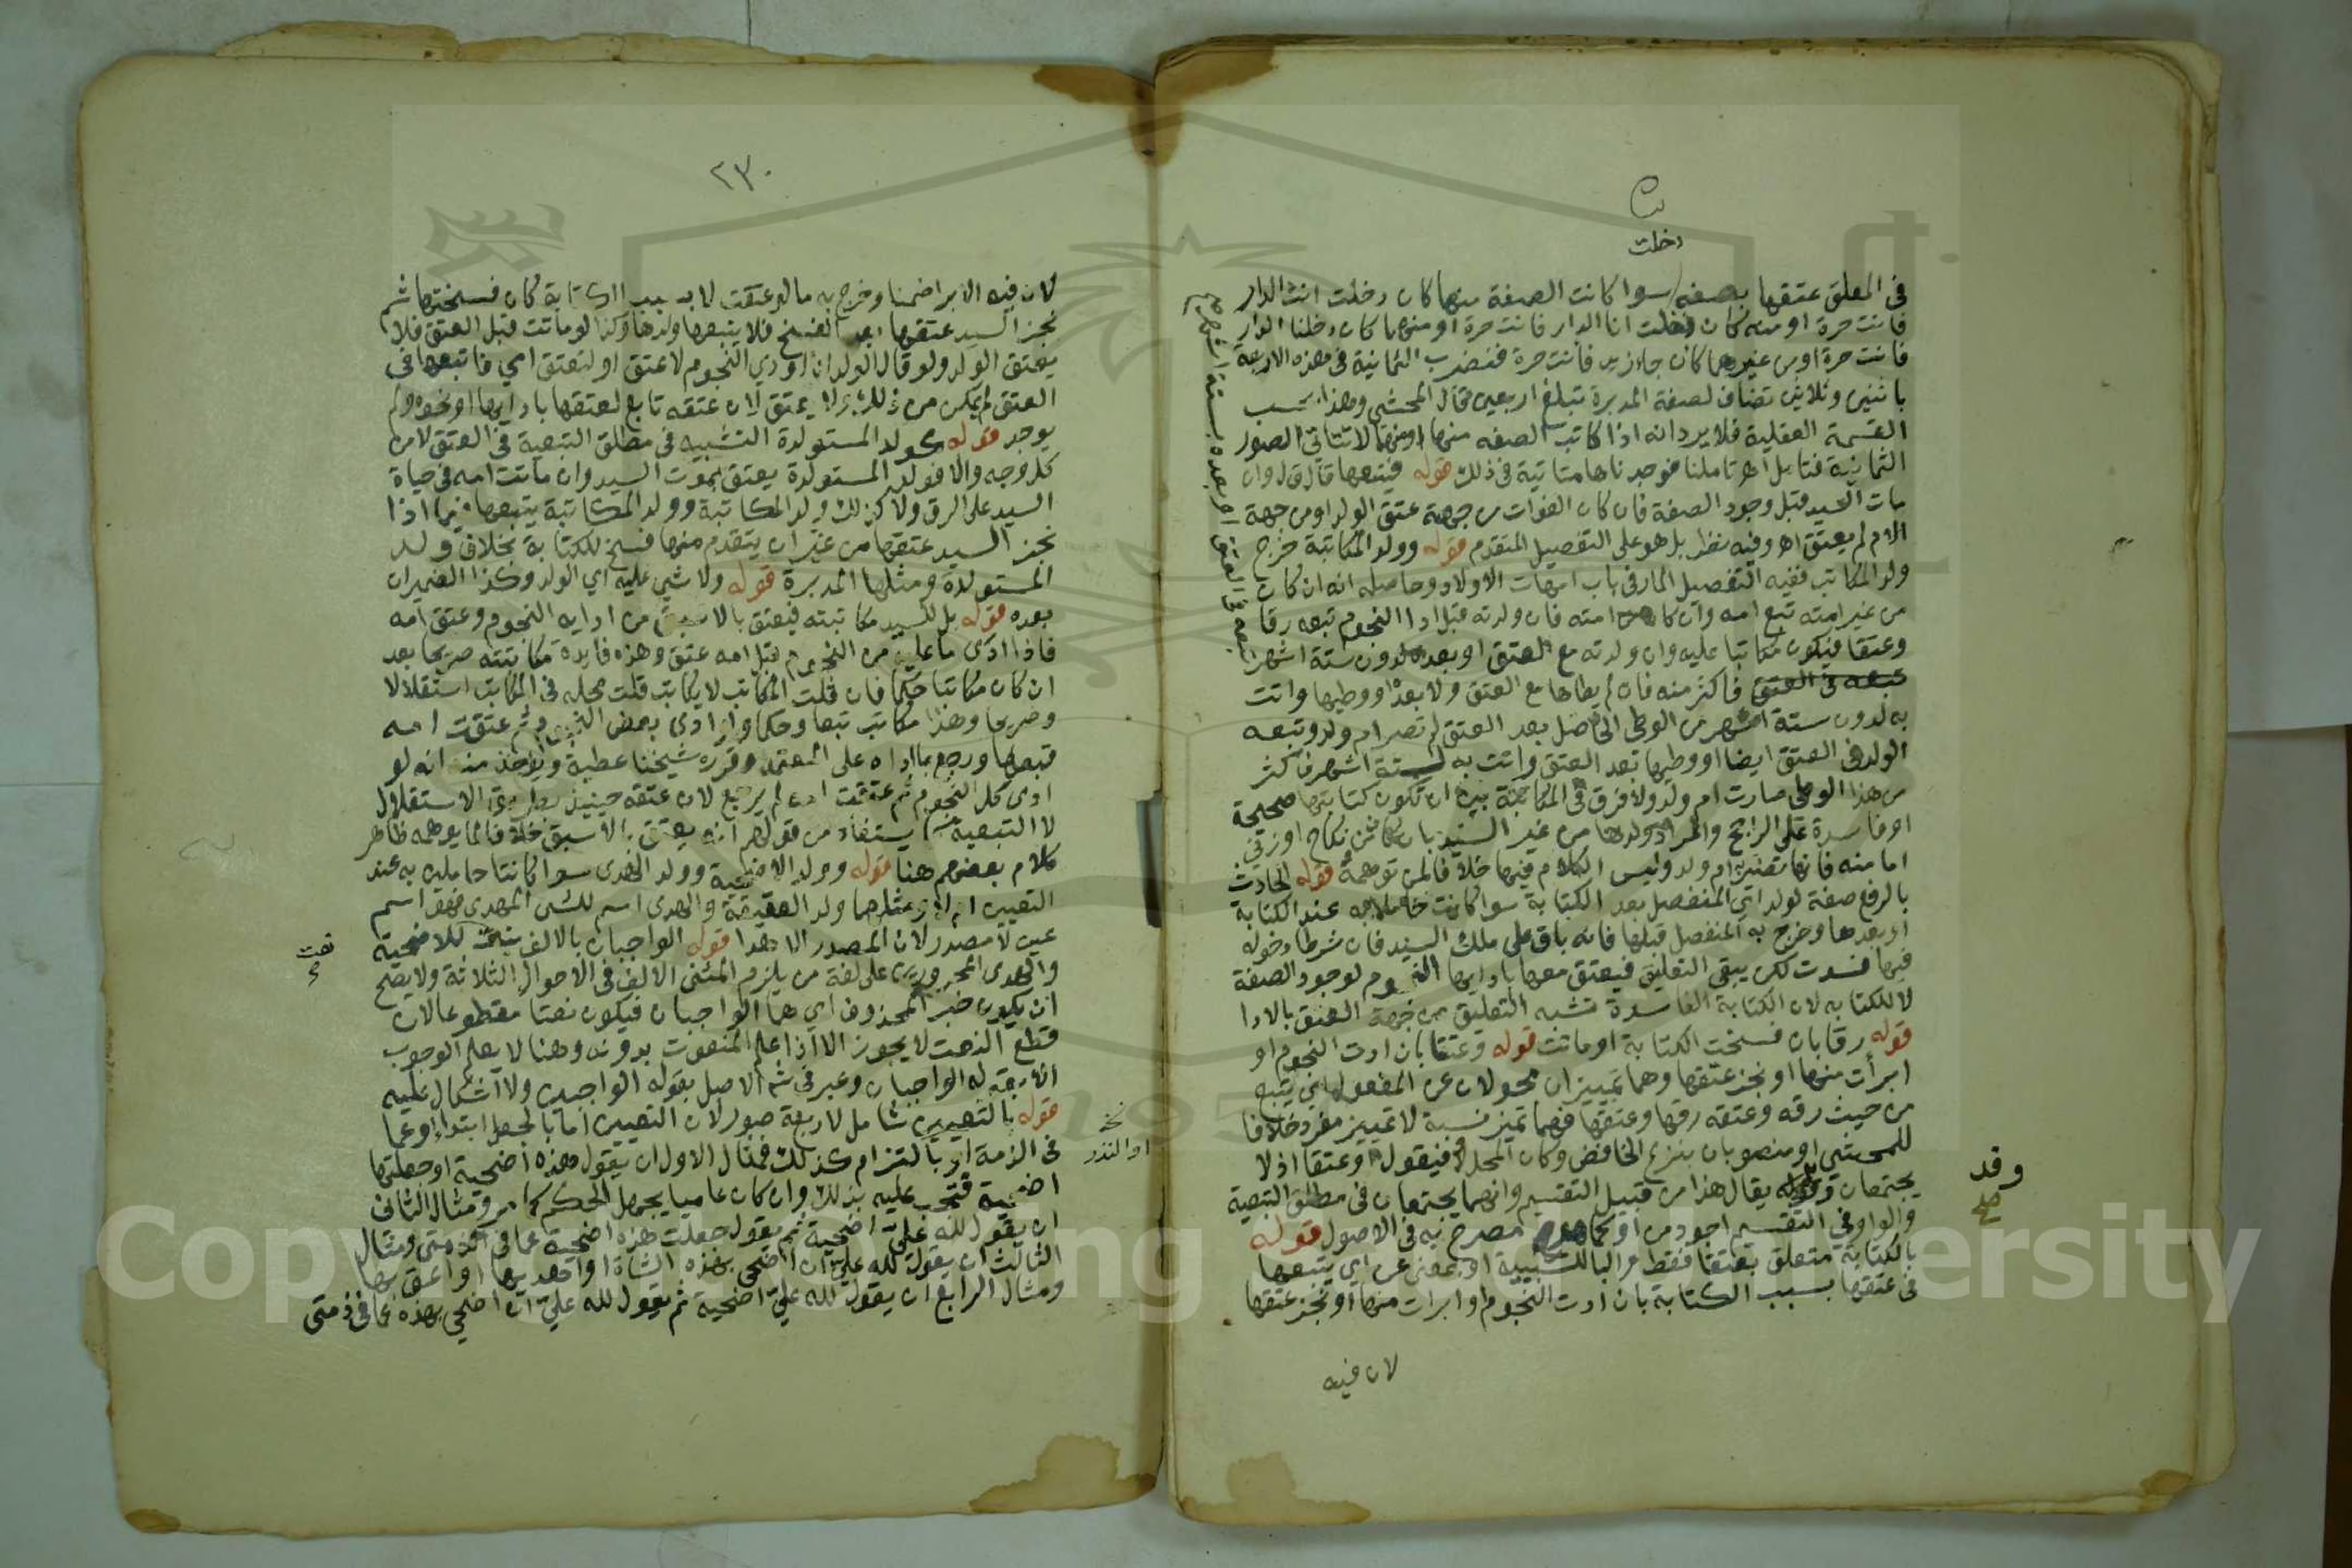 دخلت
في المعلق عتقها بصفه سوا كانت الصفة منها كان دخلت انت الدار
فانت حرة او منه كان دخلت انا الدار فانت حرة او منهما كان دخلنا الدار
فانت حرة او من غيرهما كان جا زيد فانت حرة فتضرب الثمانية في هذه الاربعة
باثنين وثلاثين تضاف لصفة المدبرة تبلغ اربعين قال المحشي وهذا بحسب
القسمة العقلية فلا يرد انه اذا كاتب الصفه منها او منهما لا تتاتى الصور
الثمانية فتامل اهـ تاملنا فوجدناها متاتية في ذلك قوله فيتبعها قال ق ل وان
مات السيد قبل وجود الصفة فان كان الفوات من جهة عتق الولد او من جهة
الام لم يعتق اهـ وفيه نظر بل هو على التفصيل المتقدم قوله وولد المكاتبة خرج
ولد المكاتب ففيه التفصيل المار في باب امهات الاولاد وحاصله انه ان كان
من غير امته تبع امه وان كان من امته فان ولدته قبل ادا النجوم تبعه رقا
وعتقا فيكون مكاتبا عليه وان ولدته مع العتق او بعده لدون ستة اشهر
تبعه في العتق فاكثر منه فان لم يطاها مع العتق ولا بعده او وطيها واتت
به لدون ستة اشهر من الوطي الحاصل بعد العتق لم تصر ام ولد وتبعه
الولد في العتق ايضا او وطيها بعد العتق واتت به لستة اشهر فاكثر
من هذا الوطي صارت ام ولد ولا فرق في المكاتبة بين ان تكون كتابتها صحيحة
او فاسدة على الراجح والمراد ولدها من غير السيد بان كان من نكاح او زنى
اما منه فانها تصير ام ولد وليس الكلام فيها خلافا لمن توهمه قوله الحادث
بالرفع صفة لولد اي المنفصل بعد الكتابة سوا كانت حاملا به عند الكتابة
او بعدها وخرج به المنفصل قبلها فانه باق على ملك السيد فان شرطا دخوله
فيها فسدت لكن يبقى التعليق فيعتق معها بادايها النجوم لوجود الصفة
لا للكتابه لان الكتابة الفاسدة تشبه التعليق من جهة العتق بالادا
قوله رقا بان فسخت الكتابة او ماتت قوله وعتقا بان ادت النجوم او
ابرأت منها او نجز عتقها وهما تمييزان محولان عن المفعول اي يتبع
من حيث رقه وعتقه رقها وعتقها فهما تميز نسبة لا تمييز مفرد خلافا
للمحشي او منصوبان بنزع الخافض وكان المحل فيقول او عتقا اذ لا
يجتمعان وقد يقال هذا من قبيل التقسيم وانهما يجتمعان في مطلق التبعية
والواو في التقسيم اجود من او كما هو مصرح به في الاصول قوله
بالكتابة متعلق بعتقا فقط والبا للسببية او بمعنى عن اي يتبعها
في عتقها بسبب الكتابة بان ادت النجوم او ابرات منها او نجز عتقها
لان فيه
وقد
صح
٢٣٠
لان فيه الابرا ضمنا وخرج به ما لو عتقت لا بسبب الكتابة كان فسختها ثم
نجز السيد عتقها بعد الفسخ فلا يتبعها ولدها وكذا لو ماتت قبل العتق فلا
يعتق الولد ولو قال الولد انا اودي النجوم لاعتق او لتعتق امي فاتبعها في
العتق لم يمكن من ذلك ولا يعتق لان عتقه تابع لعتقها بادايها او نحوه ولم
يوجد قوله كولد المستولدة التشبيه في مطلق التبعية في العتق لا من
كل وجه والا فولد المستولدة يعتق بموت السيد وان ماتت امه في حياة
السيد على الرق ولا كذلك ولد المكاتبة وولد المكاتبة يتبعها فيما اذا
نجز السيد عتقها من غير ان يتقدم منها فسخ للكتابة بخلاف ولد
المستولدة ومثلها المدبرة قوله ولا شي عليه اي الولد وكذا الضميران
بعده قوله بل للسيد مكاتبته فيعتق بالاسبق من ادايه النجوم وعتق امه
فاذا ادى ما عليه من النجوم قبل امه عتق وهذه فايدة مكاتبته صريحا بعد
ان كان مكاتبا حكما فان قلت المكاتب لا يكاتب قلت محله في المكاتب استقلالا
وصريحا وهذا مكاتب تبعا وحكما وان ادى بعض النجوم ثم عتقت امه
تبعها ورجع بما اداه على المعتمد وقرره شيخنا عطية ويؤخذ منه انه لو
ادى كل النجوم ثم عتقت امه لم يرجع لان عتقه حينيذ بطريق الاستقلال
لا التبعية كما يستفاد من قولهم انه يعتق بالاسبق خلافا لما يوهمه ظاهر
كلام بعضهم هنا قوله وولد الاضحية وولد الهدى سوا كانتا حاملين به عند
التعيين ام لا ومثلهما ولد العقيقة والهدى اسم للشي المهدى فهو اسم
عين لا مصدر لان المصدر الاهدا قوله الواجبان بالالف نعت للاضحية
والهدى المجرورين على لغة من يلزم المثنى الالف في الاحوال الثلاثة ولا يصح
ان يكون خبر المحذوف اي هما الواجبان فيكون نعتا مقطوعا لان
قطع النعت لا يجوز الا اذا علم المنعوت بدونه وهنا لا يعلم الوجوب
الا بقوله الواجبان وعبر في شرح الاصل بقوله الواجبين ولا اشكال عليه
قوله بالتعيين شامل لاربعة صور لان التعيين اما بالجعل ابتدا او عما
في الذمة او بالتزام كذلك فمثال الاول ان يقول هذه اضحية او جعلتها
اضحية فتجب عليه بذلك وان كان عاميا يجهل الحكم كما مر ومثال الثاني
ان يقول لله علي اضحية ثم يقول جعلت هذه اضحية عما في ذمتي ومثال
الثالث ان يقول لله علي ان اضحي بهذه الشاة او اهديها او اعق بها
ومثال الرابع ان يقول لله علي اضحية ثم يقول لله علي ان اضحي بهذه عما في ذمتي
نعت
او النذر
Copy King Saud University